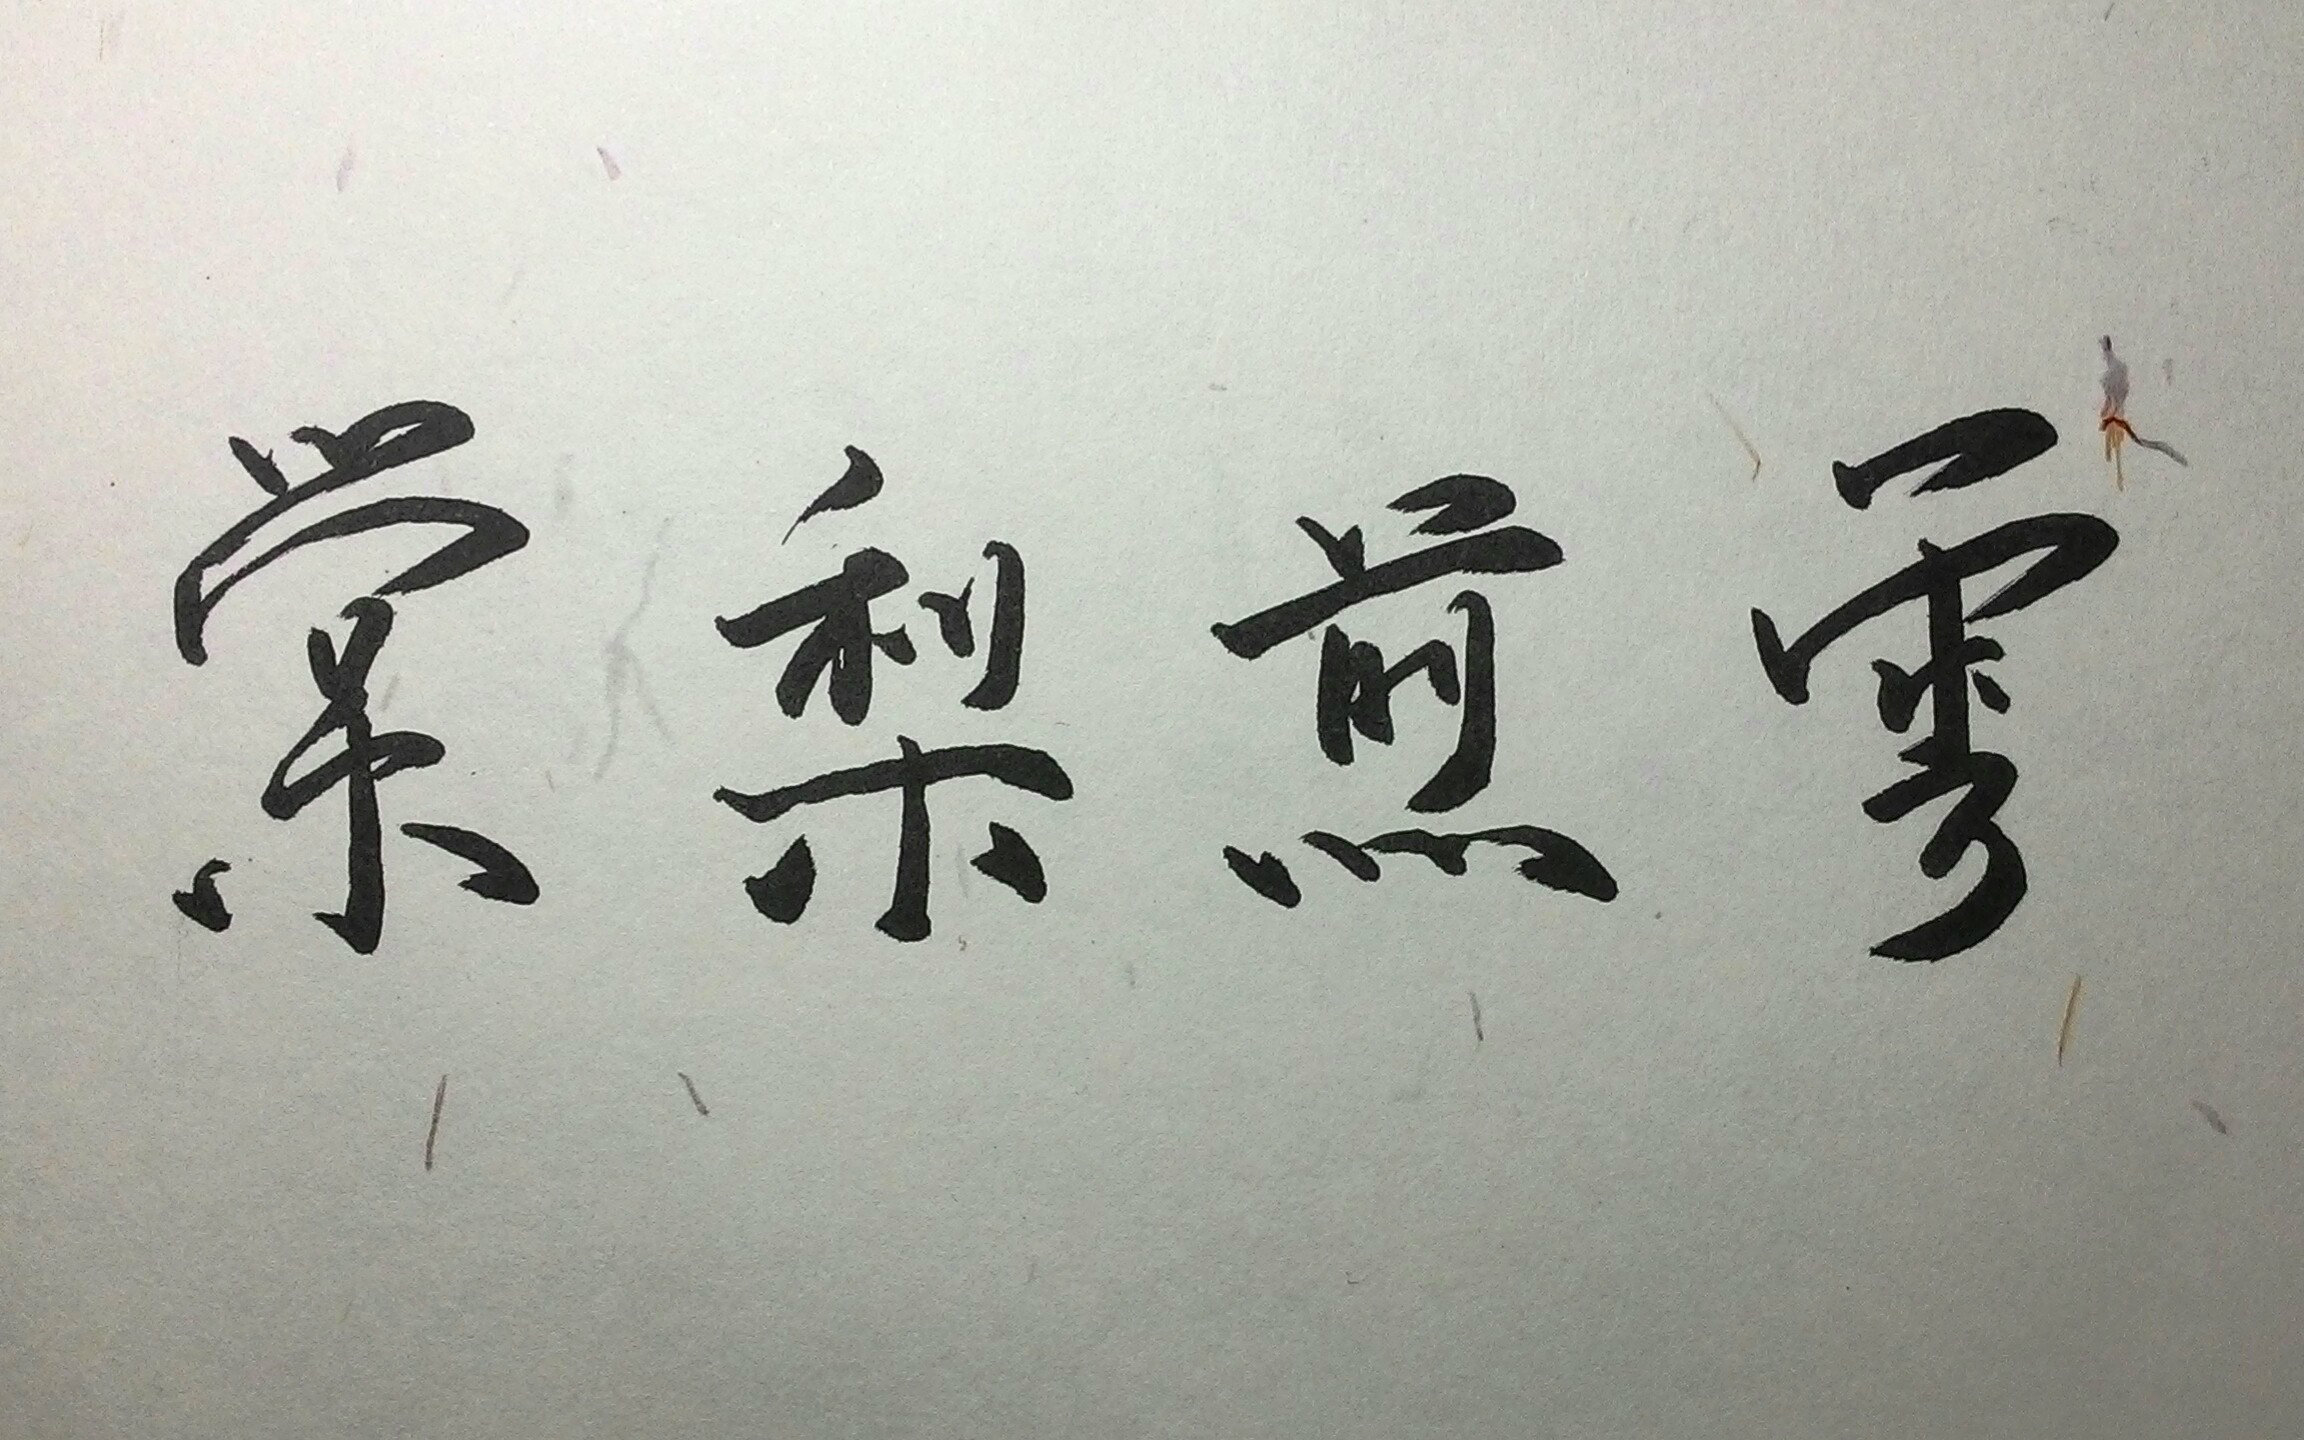 棠梨煎雪